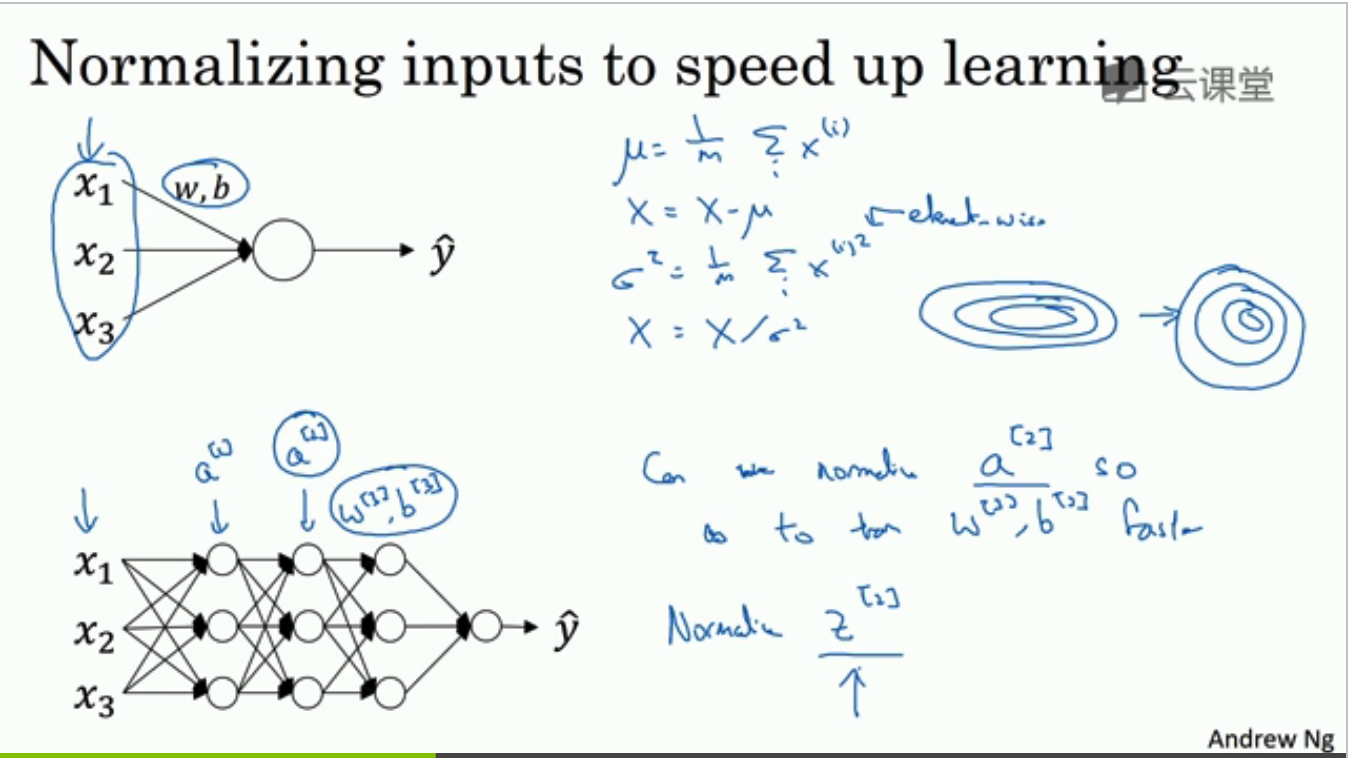 Normalizing inputs to speed up learning
云课堂
x₁
x₂
x₃
w, b
ŷ
μ = 1/m Σᵢ x⁽ⁱ⁾
X = X - μ
σ² = 1/m Σᵢ x⁽ⁱ⁾²
element-wise
X = X / σ²
a⁽¹⁾
a⁽²⁾
w⁽³⁾, b⁽³⁾
x₁
x₂
x₃
ŷ
Can we normalize a⁽²⁾ so
as to train w⁽³⁾, b⁽³⁾ faster
Normalize z⁽²⁾
Andrew Ng